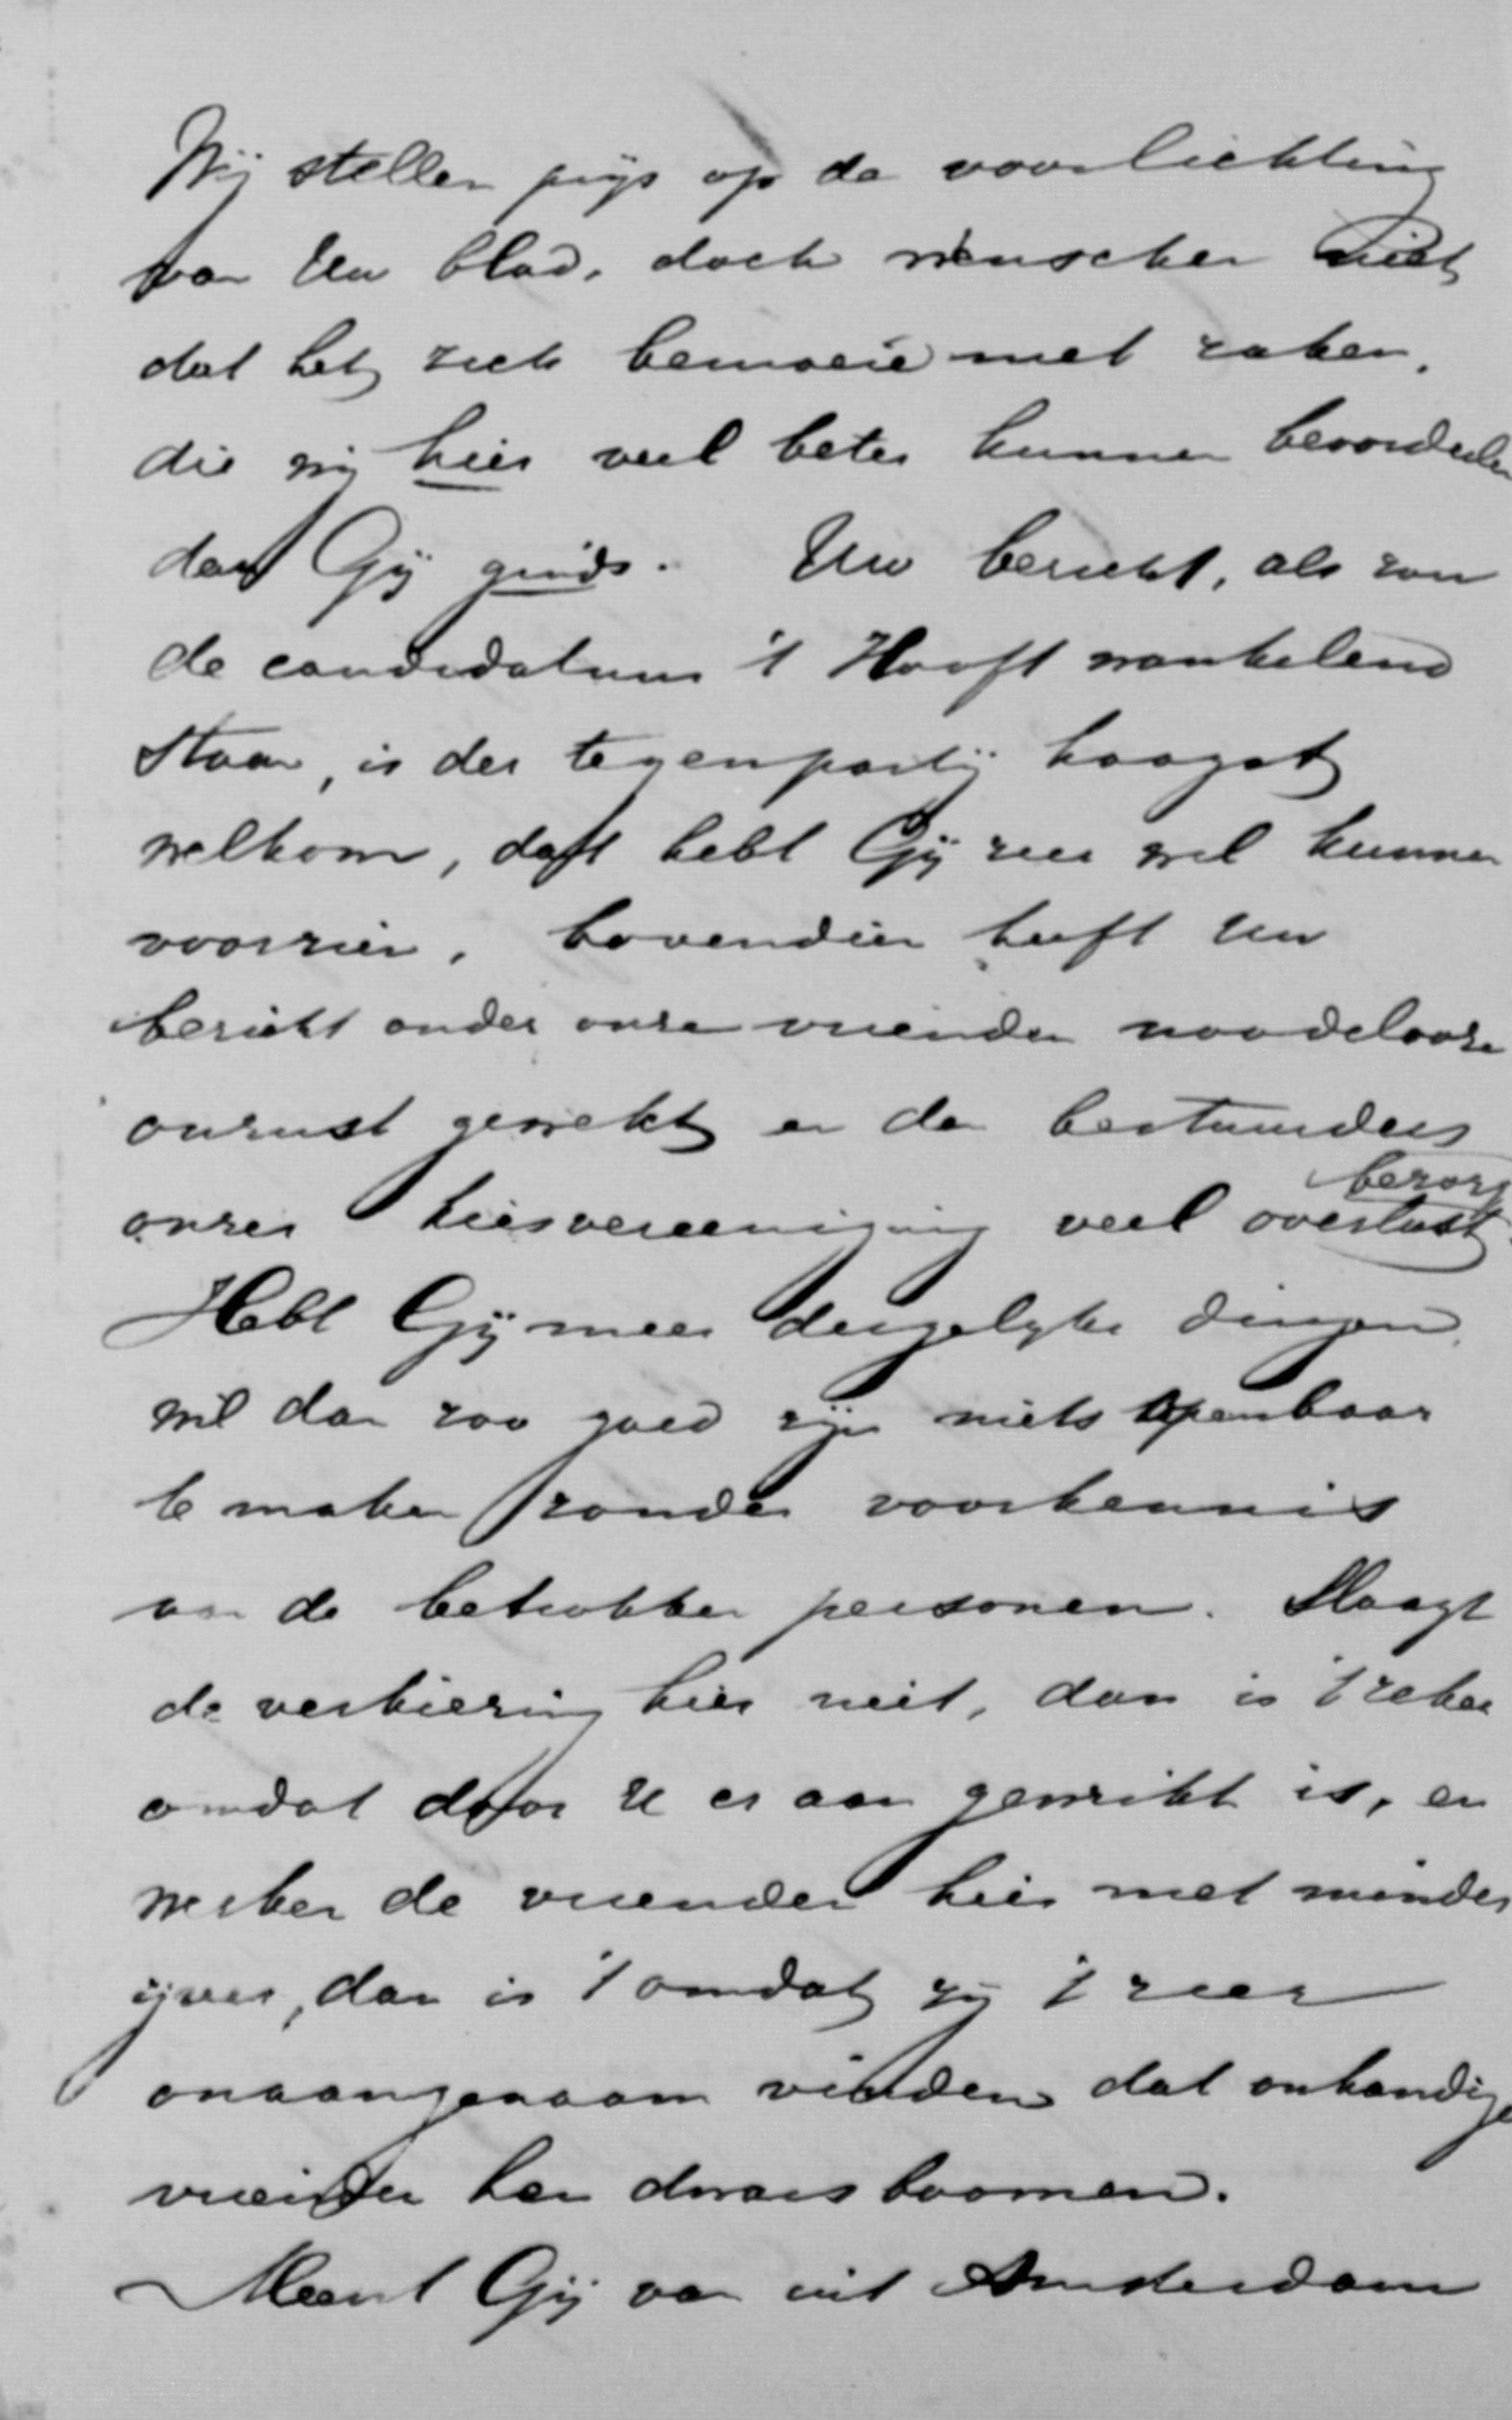 Wij stellen prijs op de voorlichting
van Uw blad, doch wenschen niet
dat het zich bemoeie met zaken,
die wij hier veel beter kunnen beoordeelen
dan Gij ginds. Uw bericht, als zou
de candidatuur 't Hooft wankelend
staan, is der tegenpartij hoogst
welkom, dat hebt Gij zeer wel kunnen
voorzien, bovendien heeft Uw
bericht onder onze vrienden noodelooze
onrust gewekt en de bestuurders
onzer kiesvereeniging veel overlast bezorgd.
Hebt Gij meer dergelijke dingen,
wil dan zoo goed zijn niets openbaar
te maken zonder voorkennis
van de betrokken personen. Slaagt
de verkiezing hier niet, dan is 't zeker
omdat door U er aan gewrikt is, en
werken de vrienden hier met minder
ijver, dan is 't omdat zij 't zeer
onaangenaam vinden dat onhandige
vrienden hen dwarsboomen.
Meent Gij van uit Amsterdam